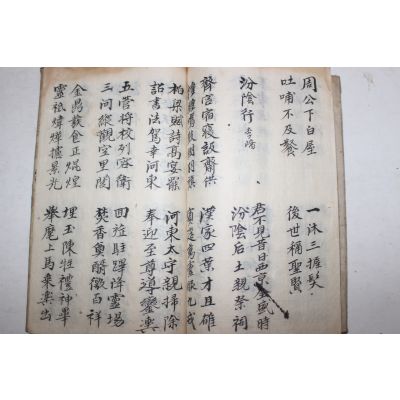 周公下白屋
吐哺不及餐
一沐三握髮
後世稱聖賢
汾陰行 李嶠
君不見昔日西京全盛時
汾陰后土親祭祠
齋宮宿寢設齋供
漢家四葉才且雄
賓延萬靈服九戎
柏梁賦詩高宴罷
詔書法駕幸河東
河東太守親掃除
奉迎至尊導鑾輿
五營將校列容衛
三河縱觀空里閭
回旌駐蹕降靈場
焚香奠酹徵百祥
金鼎發食正焜煌
靈祗煒燁攄景光
埋玉陳牲禮神畢
舉麾上馬乘輿出